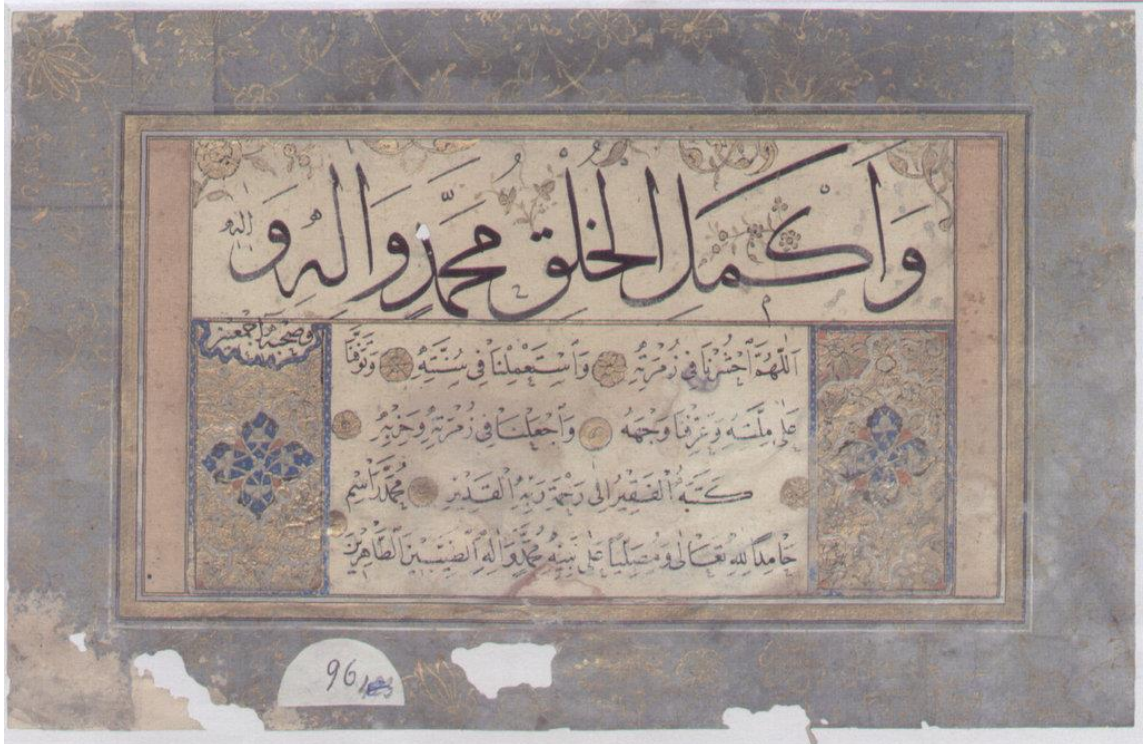 وَاَكْمَلِ الْخَلْقِ مُحَمَّدٍ وَاٰلِهِ وَ
اليه و
وصحبه اجمعين
اَللّٰهُمَّ احْشُرْنَا فِى زُمْرَتِهِ وَاسْتَعْمِلْنَا فِى سُنَّتِهِ وَتَوَفَّنَا
عَلٰى مِلَّتِهِ وَعَرِّفْنَا وَجْهَهُ وَاجْعَلْنَا فِى زُمْرَتِهِ وَحِزْبِهِ
كَتَبَهُ الْفَقِيرُ اِلٰى رَحْمَةِ رَبِّهِ الْقَدِيرِ مُحَمَّد
حَامِدًا لِلّٰهِ تَعَالٰى وَمُصَلِّيًا عَلٰى نَبِيِّهِ مُحَمَّدٍ وَاٰلِهِ الطَّيِّبِينَ الطَّاهِرِينَ
96